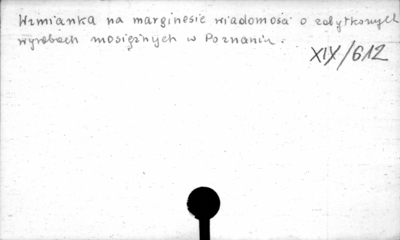 Wzmianka na marginesie wiadomości o zabytkowych
wyrobach mosiężnych w Poznaniu.
XIX/612